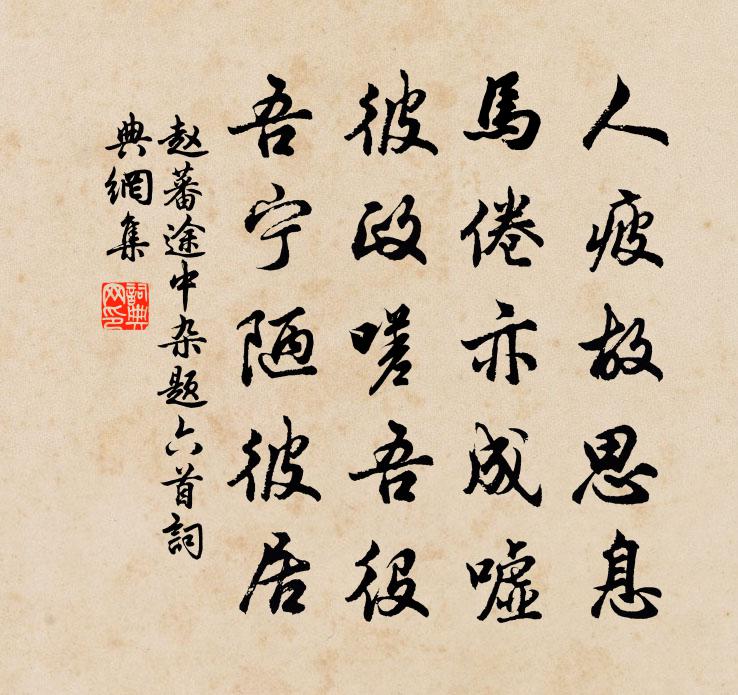 人疲故思息
馬倦亦成噓
彼政嗟吾役
吾宁陋彼居
赵蕃途中杂题六首詞
典網集
詞典
网印